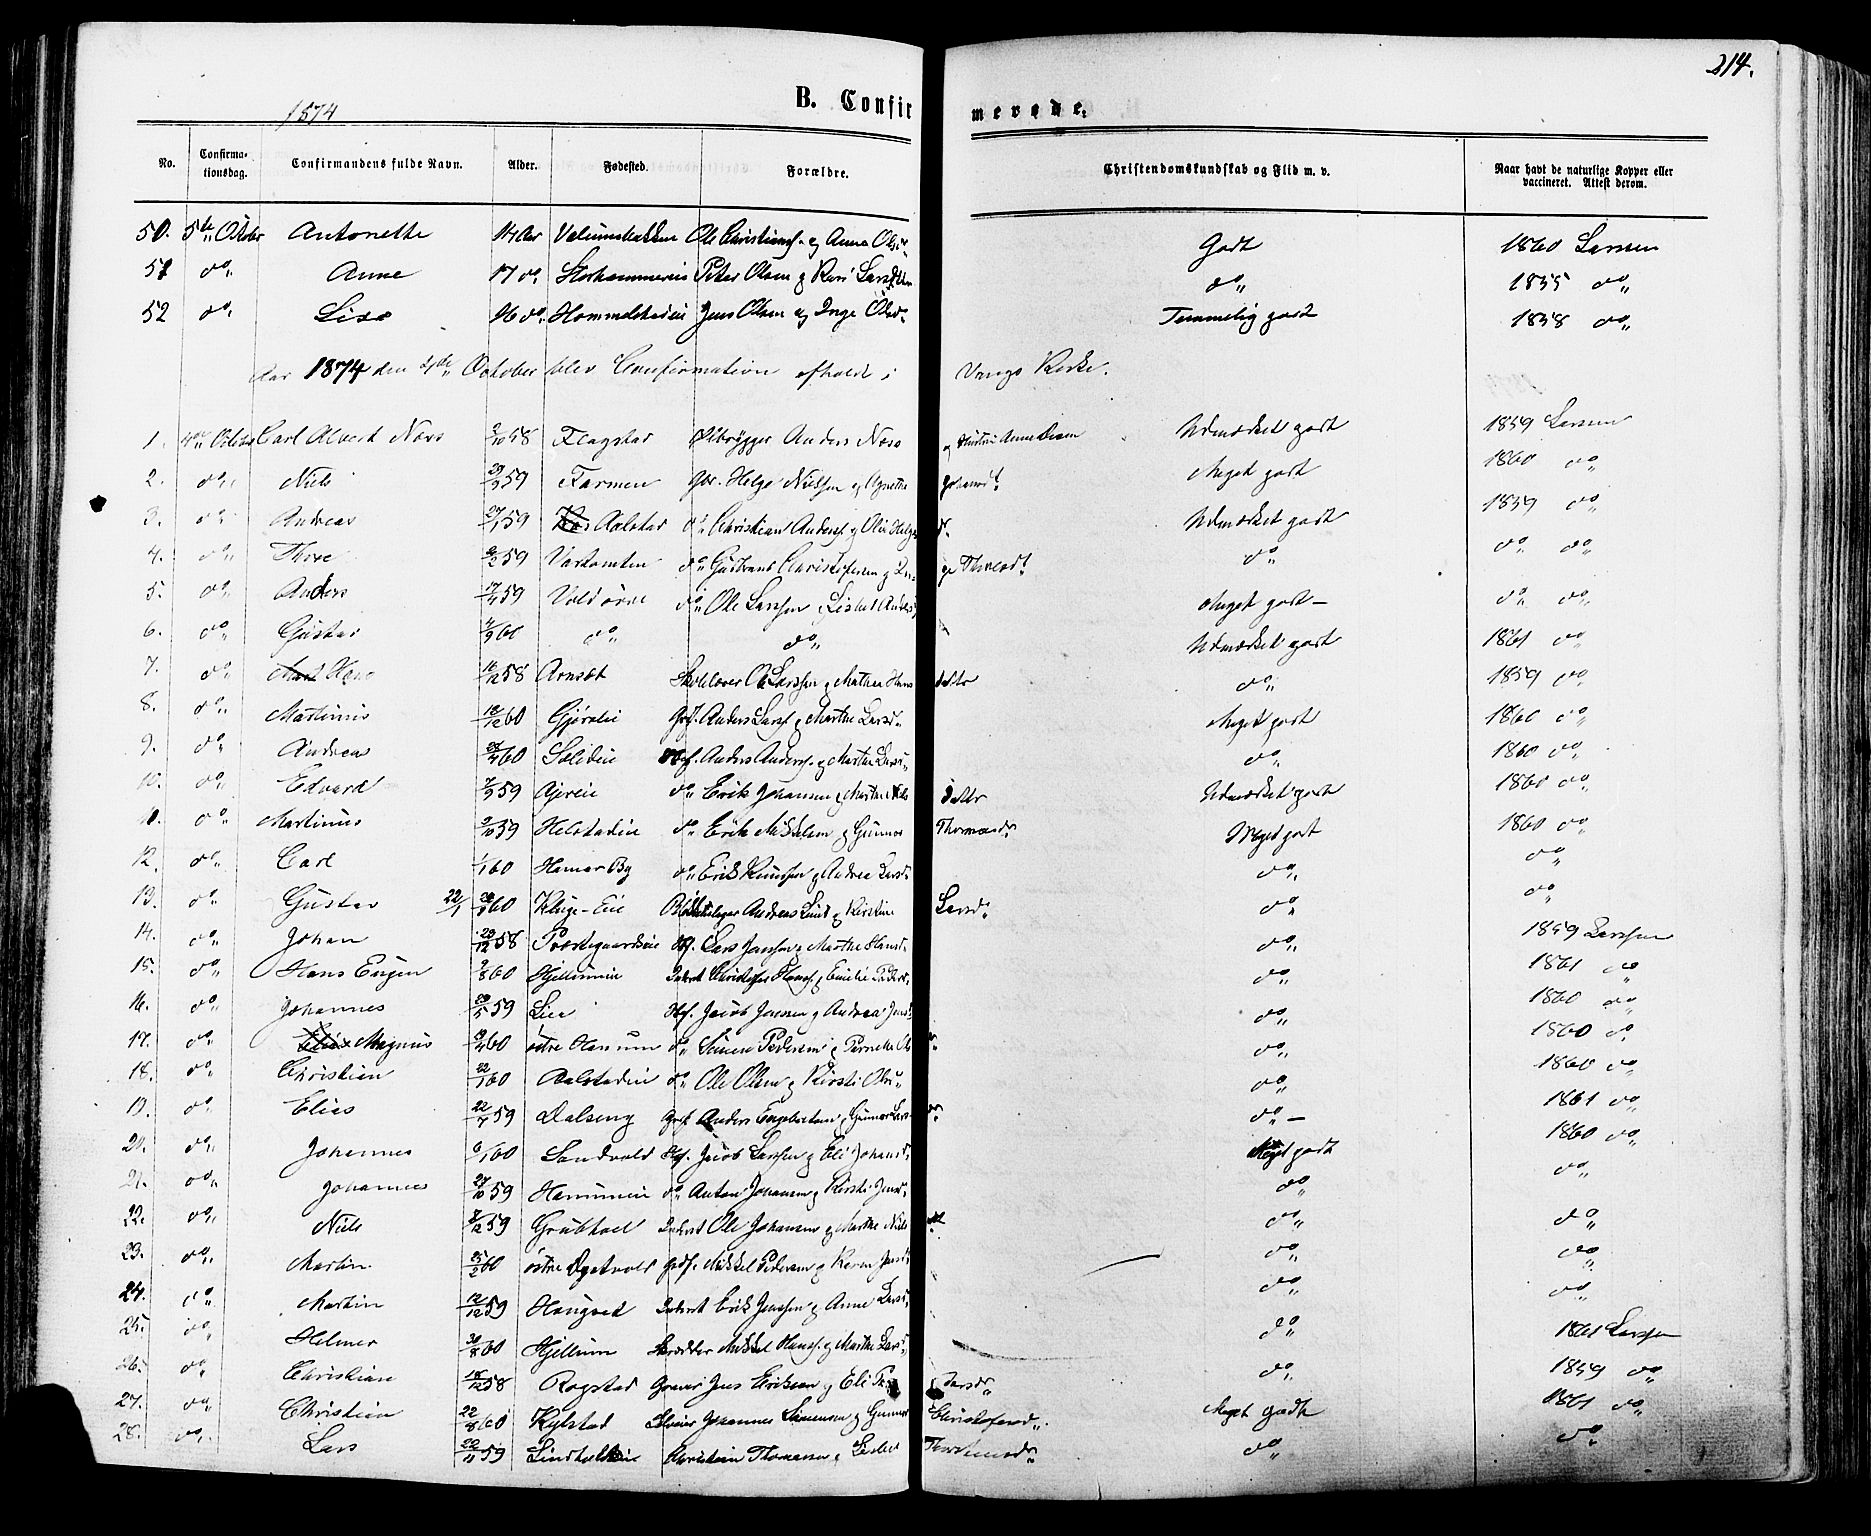 214.
1874
B. Confirmerede.
No. Confirmationsdag. Confirmandens fulde Navn. Alder. Fødested. Forældre. Christendomskundskab og Flid m. v. Naar havt de naturlige Kopper eller vaccineret. Attest derom.
50. 5te Octobr Antonette 14 Aar Ole Christians. og Anna Olsd. Godt 1860 Larsen
51 do Anne 17 do Storhammereie Peter Olsen og Kari Larsd do 1855 do
52 do Lise 16 do Hommelstadeie Jens Olsen og Inge Olsd. Temmelig godt 1858 do
Aar 1874 den 4de October blev Confirmation afholdt i Vangs Kirke.
1. 4de Octobr Carl Alvert Næss 2/10 58 Flagstad Ølbrygger Anders Næss og Hustru Anne Udmærket godt 1859 Larsen
2. do Niels 29/3 59 Farmen Helge Nielsen og Agnethe Johansd. Meget godt 1860 do
3. do Andreas 27/1 59 Aalstad do Christian Anders. og Olia Helge d. Udmærket godt 1859 do
4. do Thore 2/2 59 Vastomten do Gudbrand Christofersen og Inge Thoresd. do do do
5. do Anders 17/4 59 Vold øvre do Ole Larsen Lisbet Andersd Meget godt do do
6. do Gustav 60 do do Udmærket godt 1861 do
7. do Hans 16/12 58 Arnset Skolelærer O. Larssen og Mathea Hans datter do 1859 do
8. do Martinus 18/12 60 Gjørslie Anders Lars. og Marthe Larsd. Meget godt 1860 do
9. do Andreas 60 Solieie Anders Anders. og Marthe Larsd. do 1860 do
10. do Edvard 59 Ajereie do Erik Johansen og Marthe Nils datter Udmærket godt 1860 do
11. do Martinus 2/10 59 Helstadeie do Erik Mikkelsen og Gunnor Thomasd. Meget godt 1860 do
12. do Carl 1/1 60 Hamar By do Erik Knudsen og Andrea Larsd. do do
13. do Gustav 22/1 60 Kluge-Eie Andreas Lund og Kirstine Larsd. do do
14. do Johan 20/12 58 Præstegaardseie Hf. Lars Jensen og Marthe Hansd. do 1859 Larssen
15. do Hans Eugen 2/8 60 Hjellumeie Inderst Christofer Hans. og Emilie Peders. do 1861 do
16. do Johannes 20/5 59 Lier Hf. Jacob Jenssen og Andrea Jensd do 1860 do
17. do Magnus 60 østre Hanum do Simen Pedersen og Pernelle Ols d. do 1860 do
18. do Christian 22/1 60 Aalstadeie do Ole Olsen og Kirsti Olsd. do 1860 do
19. do Elias 22/7 59 Dalseng Anders Engebretsen og Gunnor Lars dr. do 1861 do
20. do Johannes 6/1 60 Sandvold Hf. Jacob Larssen og Eli Johansd. Meget godt 1860 do
21. do Johannes 27/10 59 Hanumeie do Anton Johansen og Kirsti Jensd. do do
22. do Niels 59 Grubhoel Inderst Ole Johansen og Marthe Niels d. do do
23. do Martin 25/2 60 østre Mikkel Pedersen og Karen Jensd. do do
24. do Martin 12/12 59 Haugsed Inderst Erik Jenssen og Anne Larsd. do do
25. do Helmer 30/8 60 Hjellum Skrædder Mikkel Hans. og Marthe Larsd. do 1861 Larssen
26. do Christian 18/12 58 Rogstad Graver Jens Eriksen og Eli Pedersdr. do 1859 do
27. do Christian 22/8 60 Kylstad Johannes Simensen og Gunnor Christofersd. Meget godt 1861 do
28. do Lars 22/11 59 Christian Thomassen og Lisbet Thorstensdr. do do